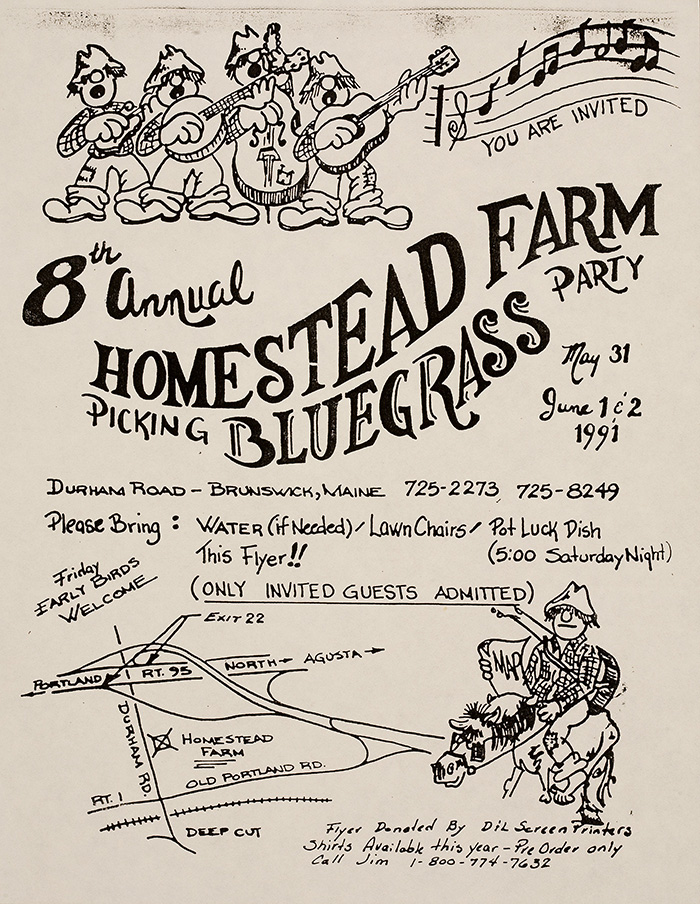 YOU ARE INVITED
8th Annual
HOMESTEAD FARM
PICKING BLUEGRASS PARTY
May 31
June 1 & 2
1991
DURHAM ROAD - BRUNSWICK, MAINE 725-2273, 725-8249
Please Bring : WATER (if Needed) / Lawn Chairs / Pot Luck Dish
This Flyer!! (5:00 Saturday Night)
(ONLY INVITED GUESTS ADMITTED)
Friday
EARLY BIRDS
WELCOME
EXIT 22
PORTLAND RT. 95 NORTH AGUSTA
MAP
DURHAM RD.
HOMESTEAD
FARM
OLD PORTLAND RD.
RT. 1
DEEP CUT
Flyer Donated By DiL Screen Printers
Shirts Available this year - Pre Order only
Call Jim 1-800-774-7632